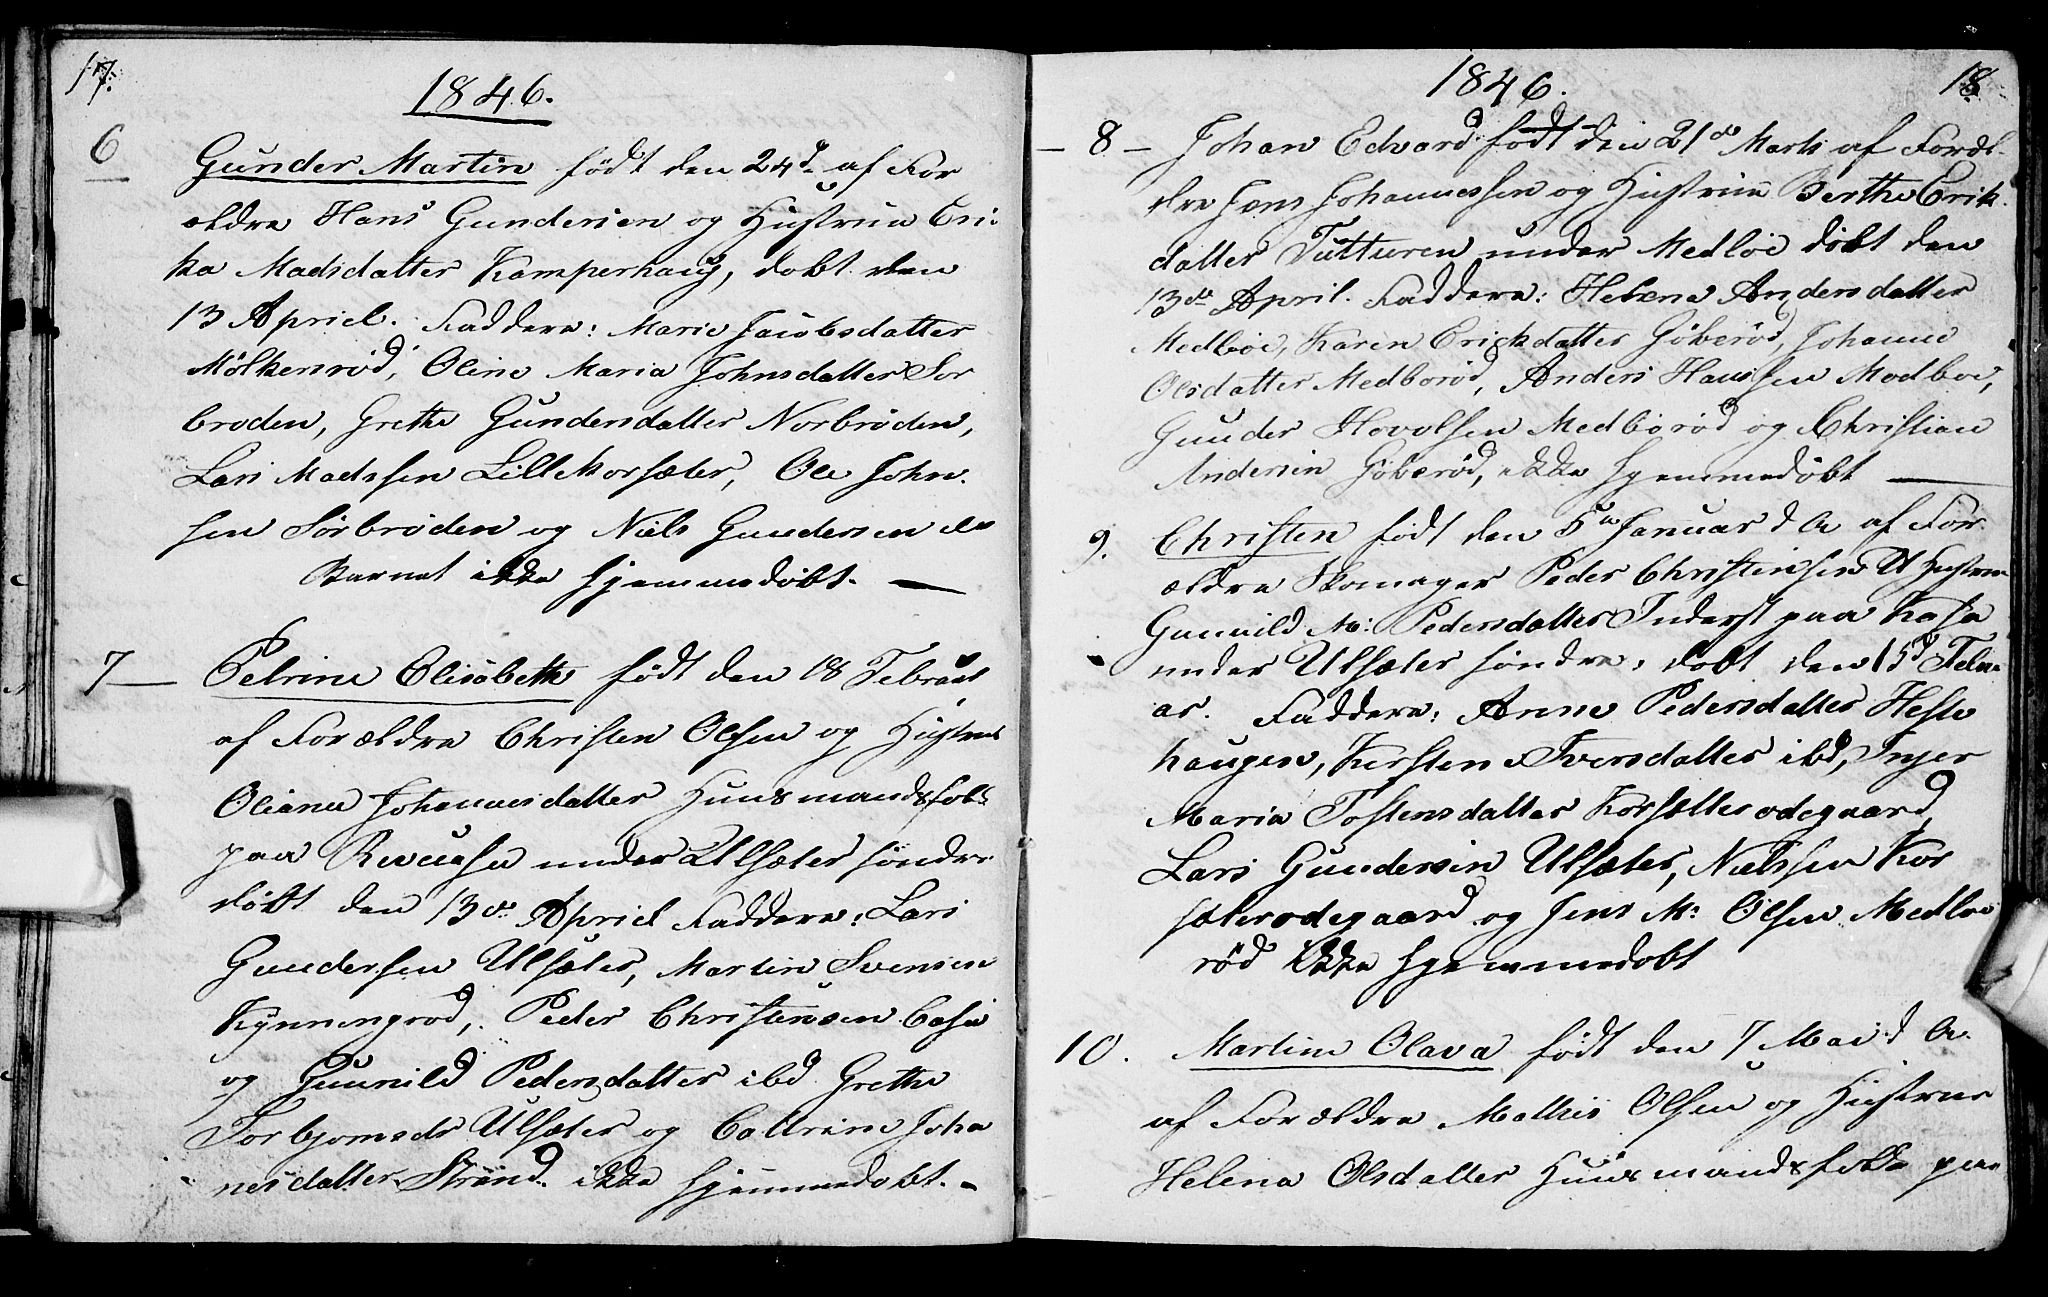 17.
1846.
6
Gunder Martin født den 24d. af For
ældre Hans Gundersen og Hustrue Eri-
ka Madsdatter Kamperhaug, døbt den
13 Apriel. Faddere: Marie Jacobsdatter
Mölkerrød, Oline Maria Johnsdatter Sør
broden, Grethe Gundersdatter Norbrøden,
Lars Madssen Lille Korsæter, Ole John-
sen Sörbrøden og Niels Gundersen
Barnet ikke hjemmedøbt.
7 — Petrine Elisabeth født den 18 Februar
af Forældre Christen Olsen og Hustrue
Oliane Johannesdatter Huusmandsfolk
paa under Ulsæter søndre
døbt den 13de Apriel Faddere: Lars
Gundersen Ulsæter, Martin Svensen
Kynningrød, Peder Christensen Casa
og Gunnild Pedersdatter ibd Grethe
Torbjornsdr Ulsæter og Cathrine Joha
nesdatter Strønd. ikke hjemmedøbt. -
1846.
18
— 8 — Johan Edvard født den 21de Marts af Foræl-
dre Jens Johannessen og Hustrue Berthe Erik
datter Tutturen under Medbøe døbt den
13de April. Faddere: Helene Andersdatter
Medbøe, Karen Erickdatter Göberød, Johanne
Olsdatter Medbørød, Anders Hanssen Medboe,
Gunder Hovelsen Medbörød og Christian
Andersen Göberød, ikke hjemmedøbt —
9. Christen født den 5te Januar d A af For-
ældre Skomager Peder Christensen & Hustrue
Gunnild M: Pedersdatter Inderst paa Kasa
under Ulsæter søndre, døbt den 15d Febru-
ar. Faddere: Anne Pedersdatter Heste
haugen, Kersten Iversdatter ibd, Inger
Maria Tostensdatter Korsætterødegaard,
Lars Gundersen Ulsæter, Nielssen Kor
sæterødegaard og Jens M: Olsen Medbøe
rød ikke hjemmedøbt
10. Martine Olava født den 7 Mai d A.
af Forældre Mathis Olsen og Hustrue
Helena Olsdatter Huusmandsfolk paa